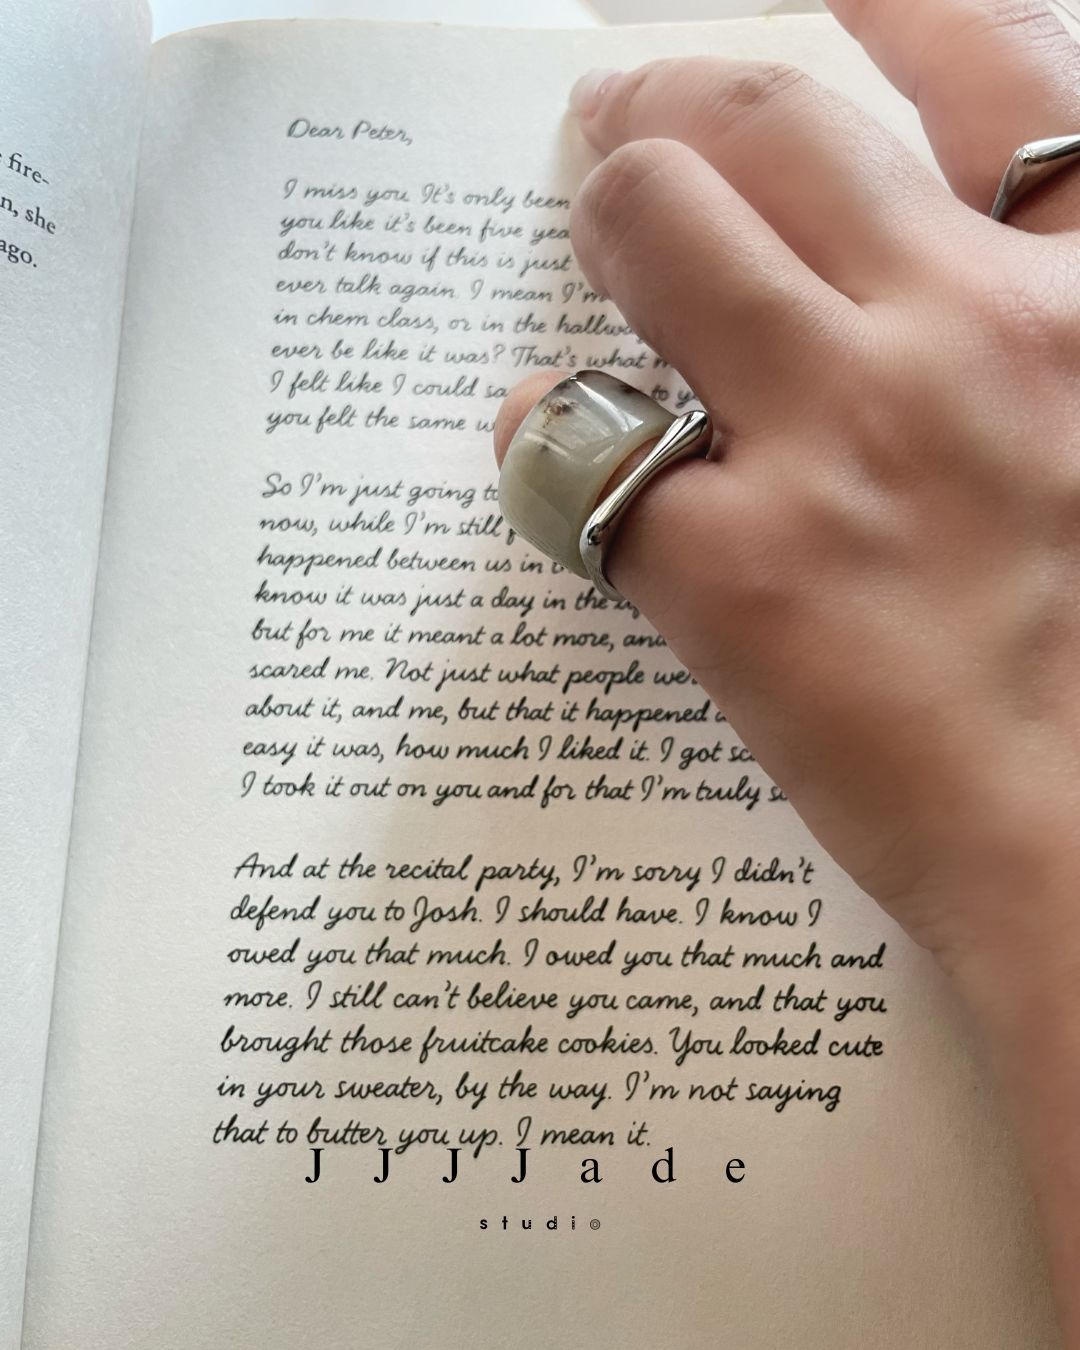 fire-
n, she
ago.
Dear Peter,
I miss you. It's only been
you like it's been five
don't know if this is just
ever talk again. I mean I'm
in chem class, or in the
ever be like it was? That's what
I felt like I could to
you felt the same
So I'm just going to
now, while I'm still
happened between us in
know it was just a day in the
but for me it meant a lot more, and
scared me. Not just what people
about it, and me, but that it happened
easy it was, how much I liked it. I got
I took it out on you and for that I'm truly
And at the recital party, I'm sorry I didn't
defend you to Josh. I should have. I know I
owed you that much. I owed you that much and
more. I still can't believe you came, and that you
brought those fruitcake cookies. You looked cute
in your sweater, by the way. I'm not saying
that to butter you up. I mean it.
J J J J a d e
studio